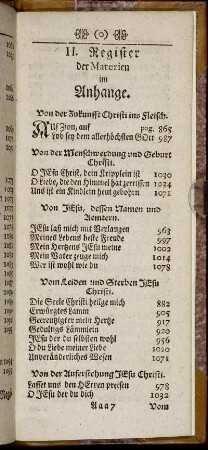 (0)
II. Register
der Materien
im
Anhange.
Von der Zukunfft Christi ins Fleisch.
AUf Zion, auf pag. 865
Lob sey dem allerhöchsten GOtt 987
Von der Menschwerdung und Geburt
Christi.
O JEsu Christ, dein Kripplein ist 1030
O Liebe, die den Himmel hat zerrissen 1034
Uns ist ein Kindlein heut gebohrn 1071
Von JEsu, dessen Namen und
Aemtern.
JEsu laß mich mit Verlangen 963
Meines Lebens beste Freude 997
Mein Hertzens JEsu meine 1002
Mein Vater zeuge mich 1014
Wer ist wohl wie du 1078
Vom Leiden und Sterben JEsu
Christi.
Die Seele Christi heilge mich 882
Erwürgtes Lamm 905
Gecreutzigter mein Hertze 917
Gedultigs Lämmlein 920
JEsu der du selbsten wohl 956
O du Liebe meiner Liebe 1020
Unveränderliches Wesen 1071
Von der Auferstehung JEsu Christi.
Lasset uns den HErren preisen 978
O JEsu der du dich 1032
Aaa7 Vom